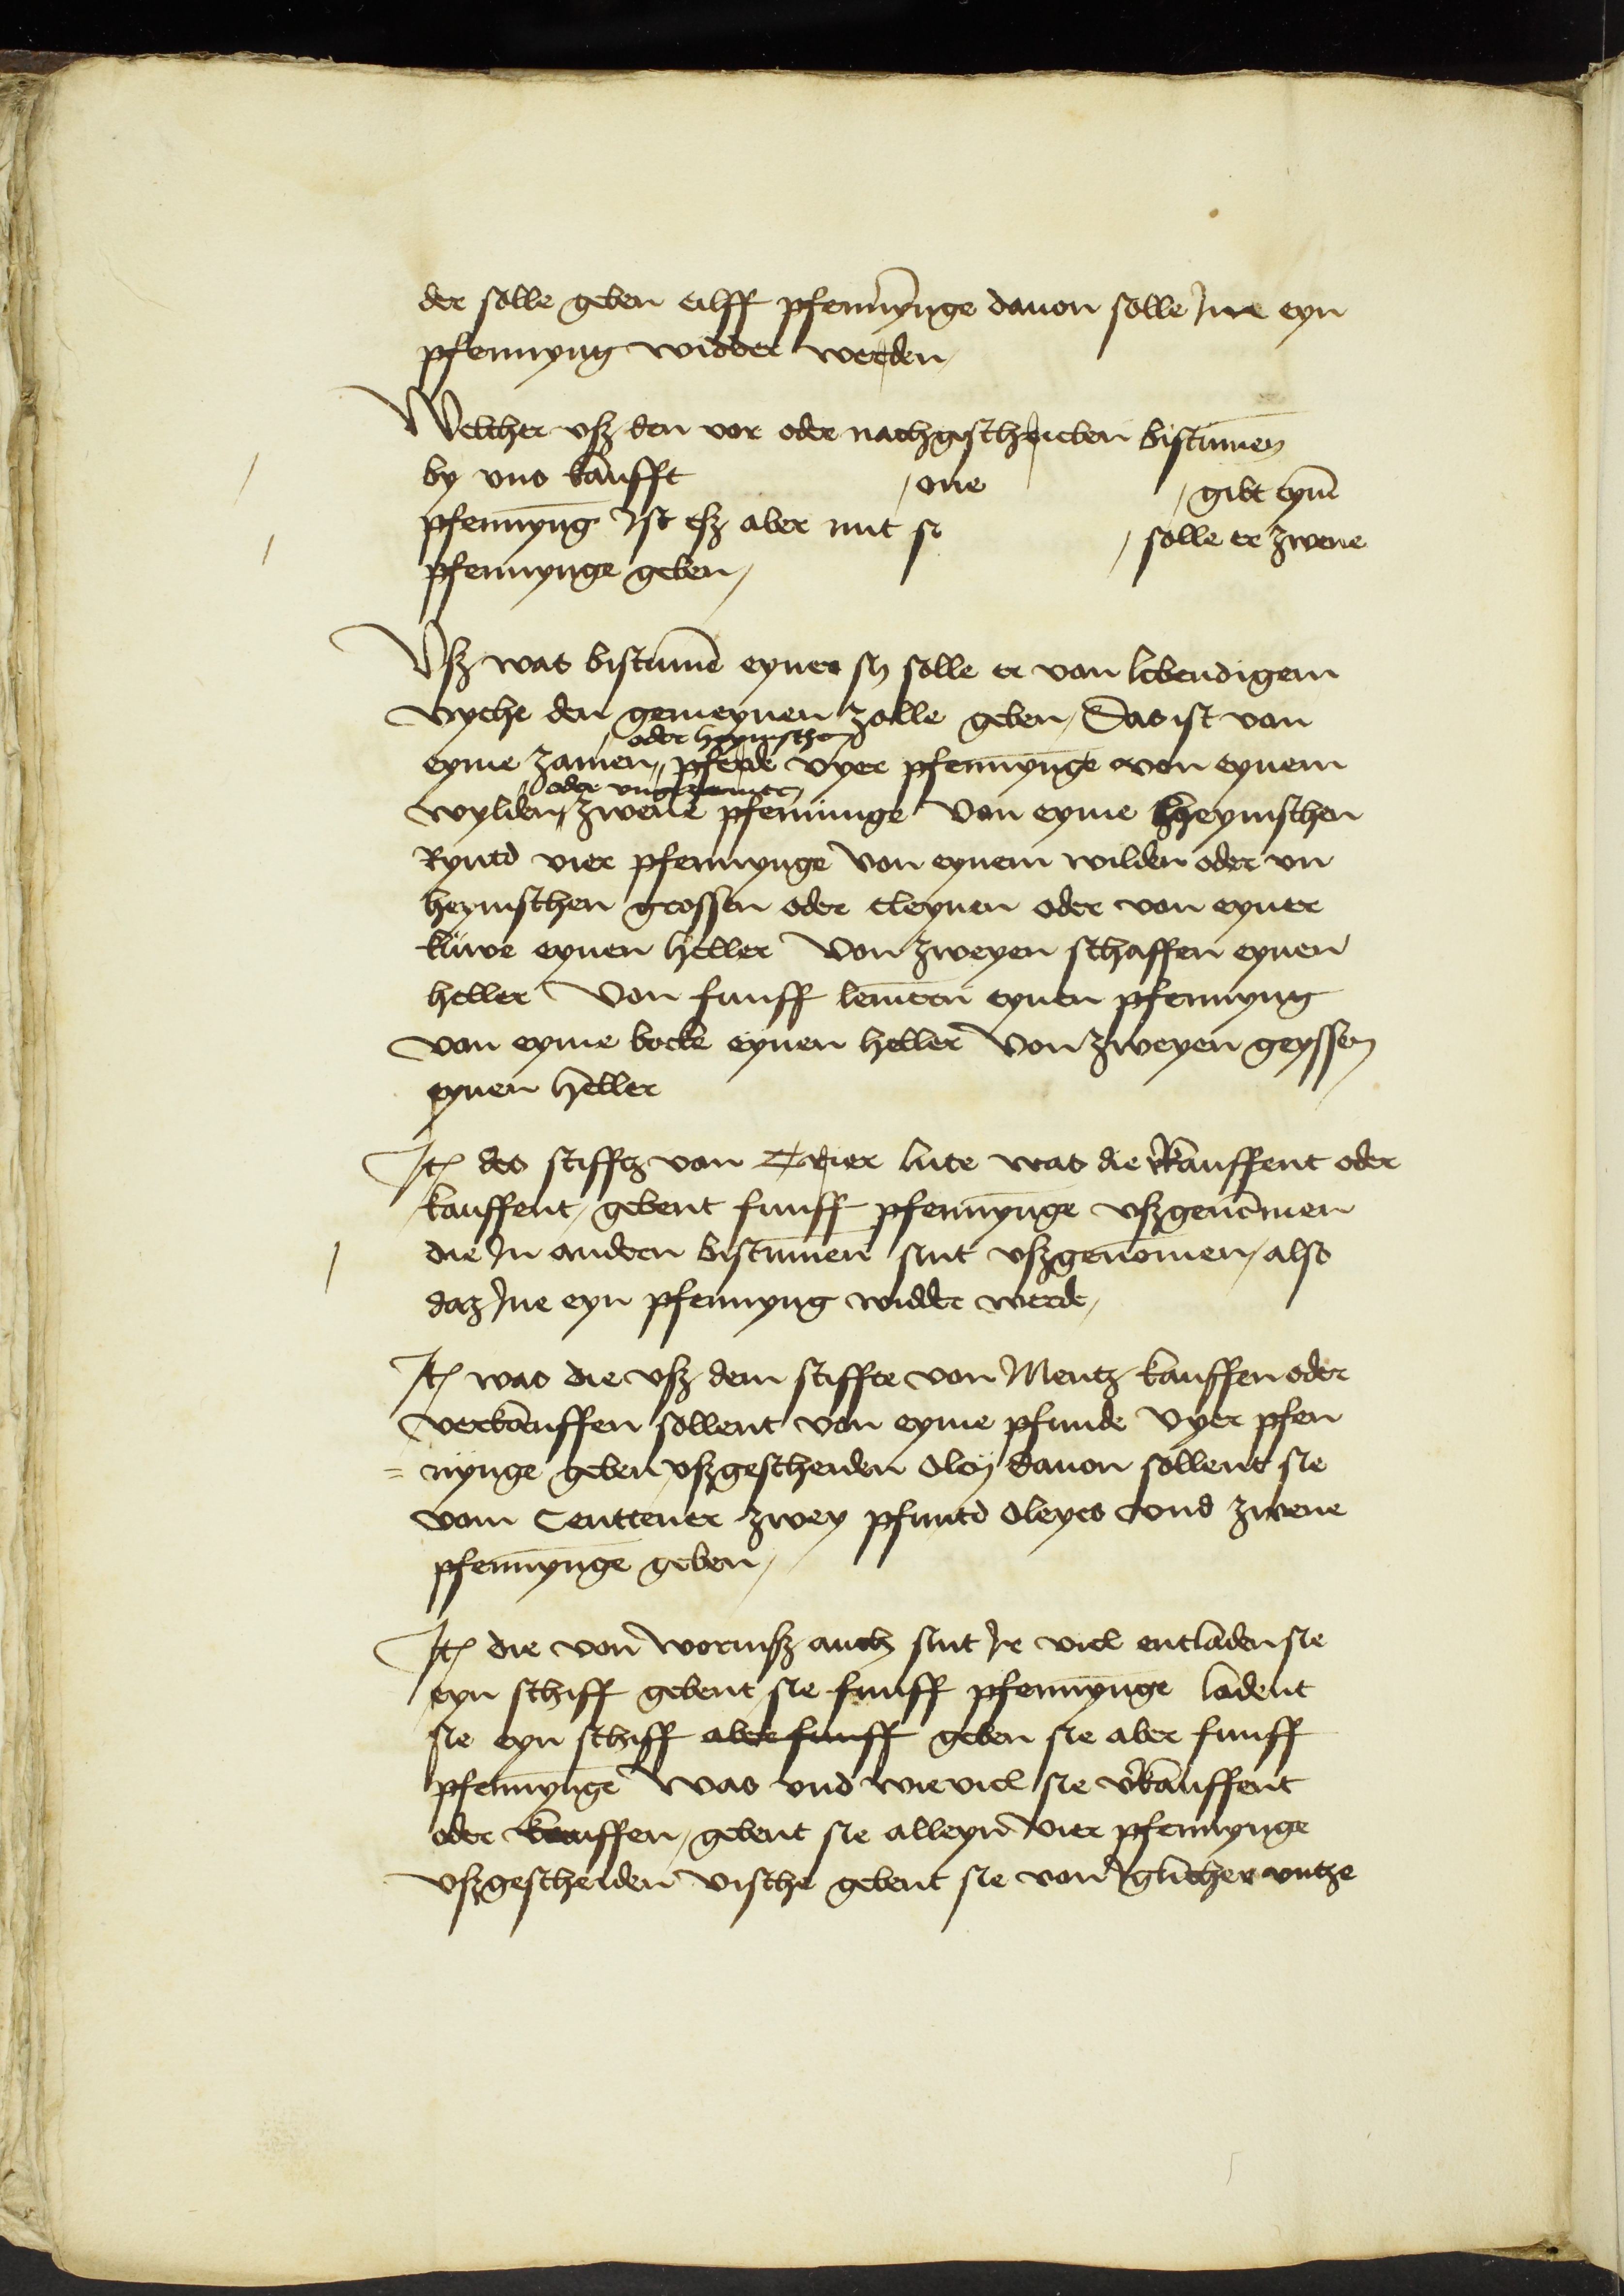 der solle geben eilff pfennynge dauon solle Ime eyn
pfennyng widder werden,
Welcher vsz den vor oder nachgeschrieben bistumen
by vns kaufft , one , gibt eyne
pfennyng Ist esz aber mit si , solle er zwene
pfennynge geben,
Vsz was bistume eyner sy solle er von lebendigem
vyche den gemeynen zolle geben, Das ist von
oder heymschen
eyme zamen, pferde vyer pfennynge von eynem
oder vngezamter
wylden, zwene pfenninge Von eyme heymschen
Ryntd vier pfennynge Von eynem wilden oder vn
heymschen grossen oder cleynen oder von eyner
kuwe eynen heller Von zweyen schaffen eynen
heller Von funff lemern eynen pfennyng
von eyme bocke eynen heller Von zweyen geyssen
eynen heller
It des stifftz von Trier lute was die v'kauffent oder
kauffent, gebent funff pfennynge vszgenomen
die In andern bistumen sint vszgenomen, also
daz Ine eyn pfennyng widder werde,
It was die vsz dem stiffte von Mentz kauffen oder
verkauffen sollent von eyme pfunde vyer pfen
= nynge geben vszgescheiden oley dauon sollent sie
vom Centtener zwey pfuntd oleyes vnd zwene
pfennynge geben,
It die von wormsz auch sint Ir viel entladen sie
eyn schiff gebent sie funff pfennynge ladent
sie eyn schiff aber funff geben sie aber funff
pfennynge Was vnd wieviel sie v'kauffent
oder kauffen, gebent sie alleyn vier pfennynge
vszgescheiden vische gebent sie von Iglicher vntze